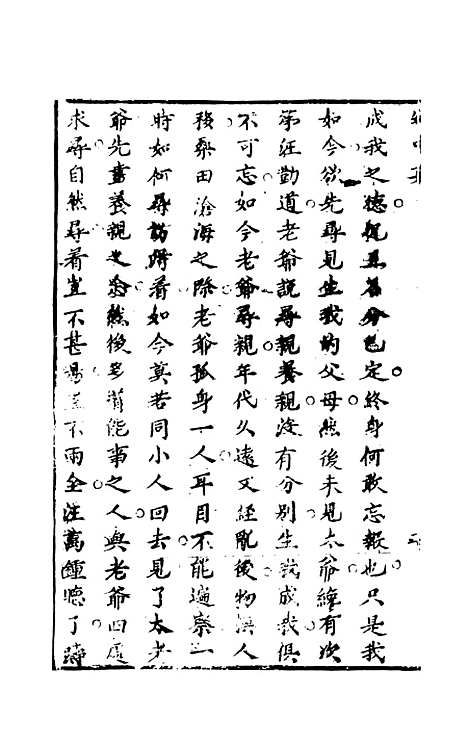 成我之德況且名分已定終身何敢忘報也只是我
如今欲先尋見生我的父母然後未見太爺纔有次
第汪勤道老爺說尋親養親沒有分別生我成我俱
不可忘如今老爺尋親年代久遠又經亂後物換人
移桑田滄海之際老爺孤身一人耳目不能遍察一
時如何尋訪得着如今莫若同小人回去見了太老
爺先盡養親之念然後多着能事之人與老爺四處
求尋自然尋着豈不甚易豈不兩全汪萬鍾聽了躊